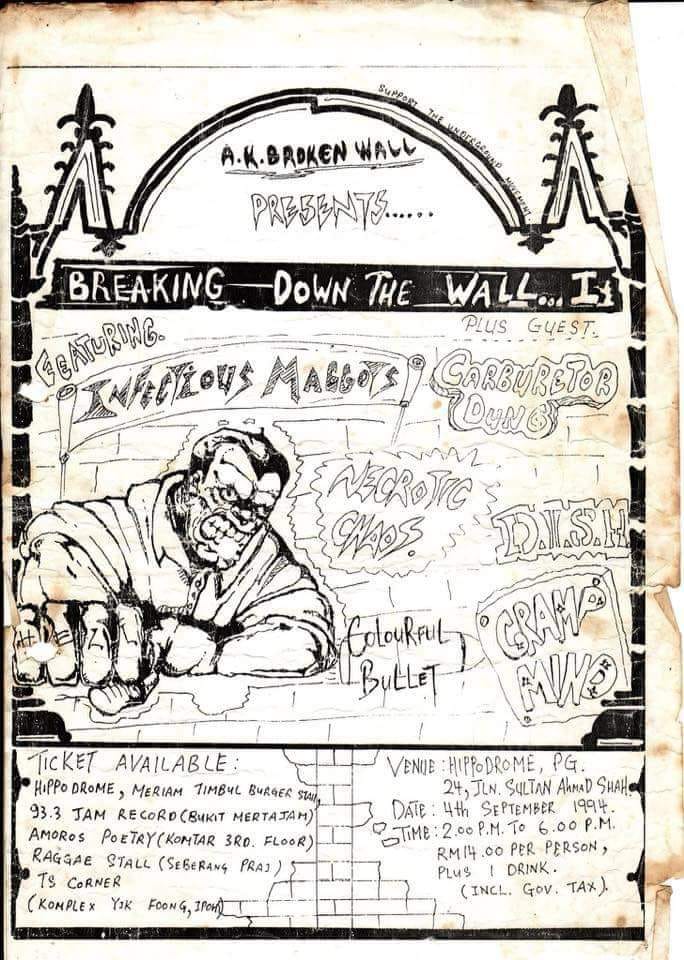 SUPPORT THE UNDERGROUND MOVEMENT
A.K. BROKEN WALL
PRESENTS......
BREAKING DOWN THE WALL... II
PLUS GUEST.
FEATURING.
INFECTIOUS MAGGOTS
CARBURETOR
DUNG
NECROTIC
CHAOS.
D.T.S.H.
COLOURFUL
BULLET
CRAMP
MIND
TICKET AVAILABLE :
HIPPODROME, MERIAM TIMBUL BURGER STALL,
93.3 JAM RECORD (BUKIT MERTAJAM)
AMOROS POETRY (KOMTAR 3RD. FLOOR)
RAGGAE STALL (SEBERANG PRAI)
TS CORNER
(KOMPLEX YIK FOONG, IPOH)
VENUE : HIPPODROME, PG.
24, JLN. SULTAN AHMAD SHAH
DATE : 4th SEPTEMBER 1994.
TIME : 2.00 P.M. TO 6.00 P.M.
RM14.00 PER PERSON,
PLUS 1 DRINK.
(INCL. GOV. TAX).